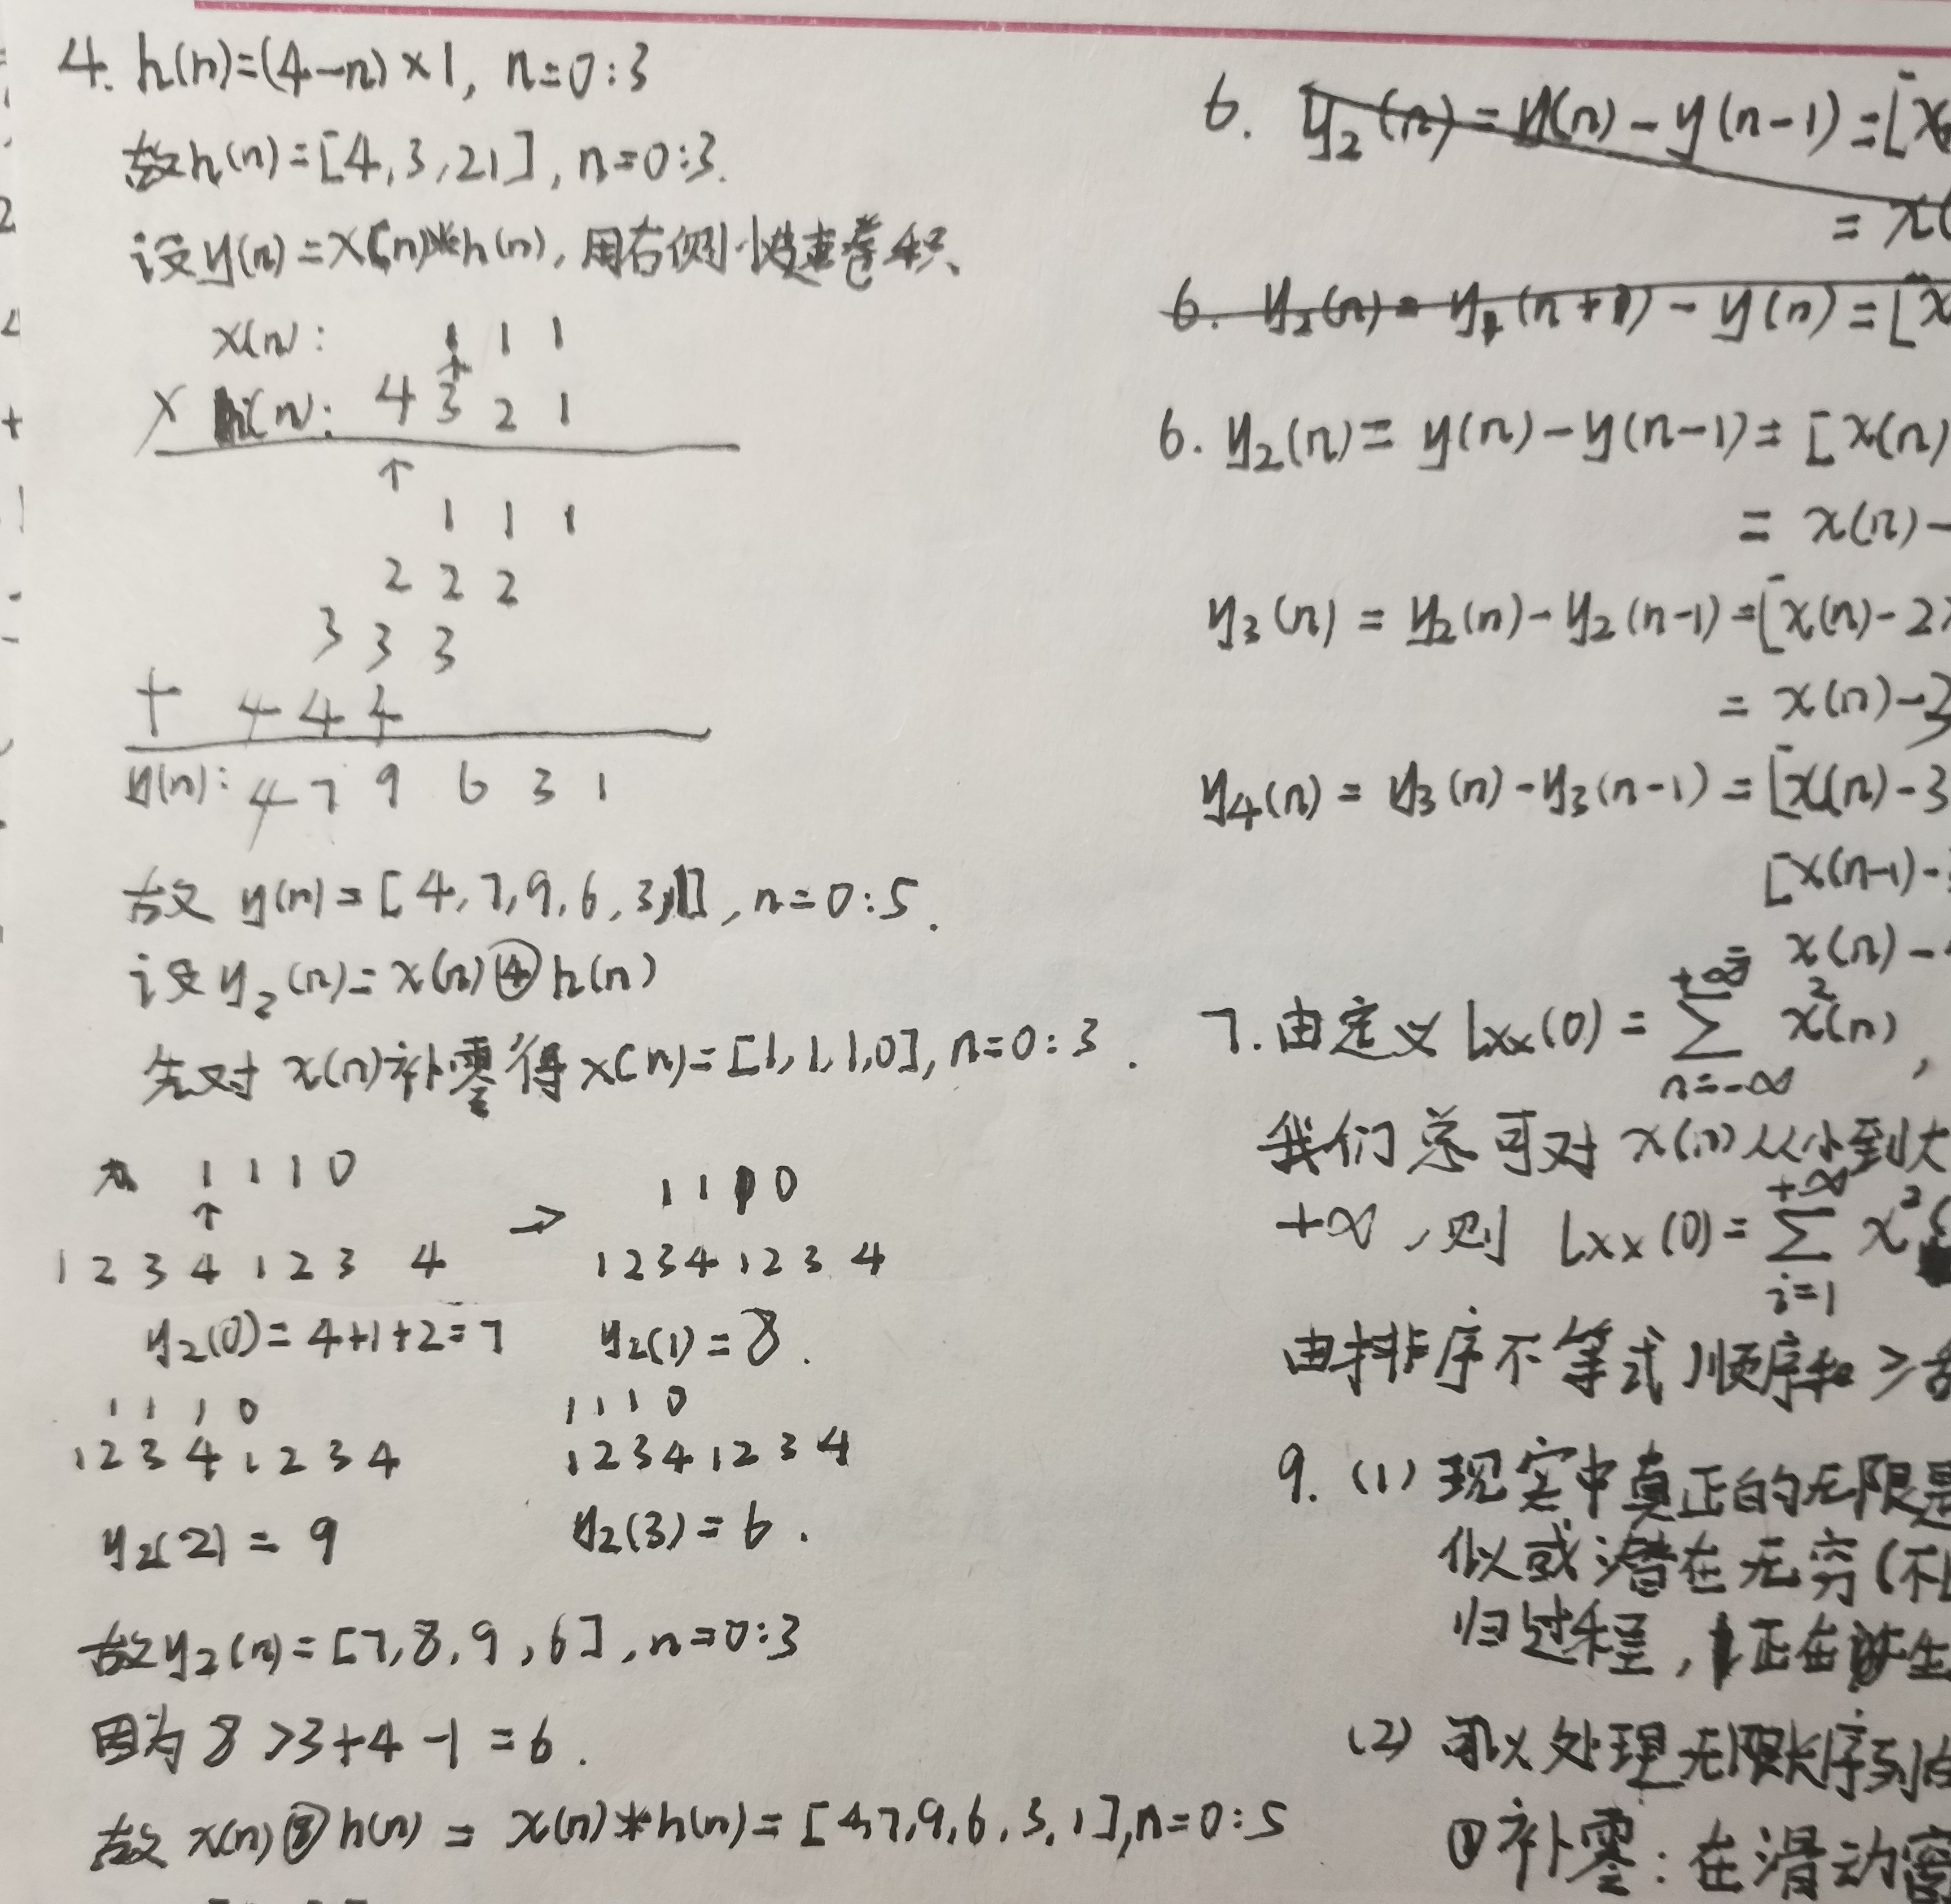 4. h(n)=(4-n)×1, n=0:3
故h(n)=[4,3,21], n=0:3.
设y(n)=x(n)*h(n), 用右侧快速卷积、
x(n): 1 1 1
↑
× h(n): 4 3 2 1
↑
1 1 1
2 2 2
3 3 3
+ 4 4 4
y(n): 4 7 9 6 3 1
故 y(n)=[4,7,9,6,3,1], n=0:5.
设y₂(n)=x(n)④h(n)
先对 x(n)补零得x(n)=[1,1,1,0], n=0:3.
1 1 1 0 → 1 1 1 0
↑
1 2 3 4 1 2 3 4 1 2 3 4 1 2 3 4
y₂(0)=4+1+2=7 y₂(1)=8.
1 1 1 0 1 1 1 0
1 2 3 4 1 2 3 4 1 2 3 4 1 2 3 4
y₂(2)=9 y₂(3)=6.
故y₂(n)=[7,8,9,6], n=0:3
因为 8>3+4-1=6.
故 x(n)⑧h(n)=x(n)*h(n)=[4,7,9,6,3,1],n=0:5
6. y₂(n)=y(n)-y(n-1)=[x
=x(
6. y₂(n)=y₁(n+1)-y(n)=[x
6. y₂(n)=y(n)-y(n-1)=[x(n)
=x(n)-
y₃(n)=y₂(n)-y₂(n-1)=[x(n)-2
=x(n)-3
y₄(n)=y₃(n)-y₃(n-1)=[x(n)-3
[x(n-1)-
=x(n)-
7.由定义 rxx(0)=∑ x²(n),
+∞
n=-∞
我们总可对 x(n)从小到大
+∞,则 rxx(0)=∑ x²
+∞
i=1
由排序不等式 顺序和≥
9. (1) 现实中真正的无限是
似或潜在无穷(不
归过程,正在
(2) 可以处理无限长序列
①补零:在滑动窗